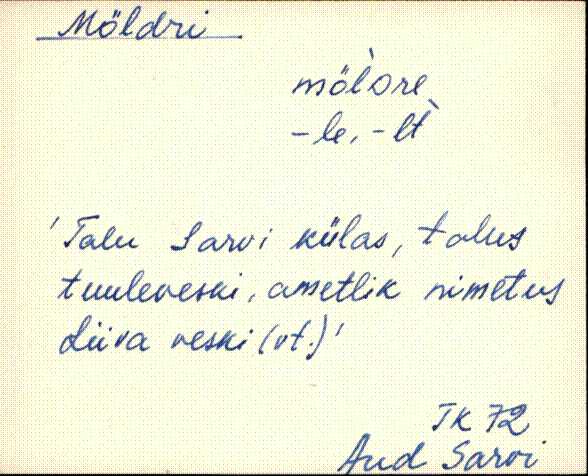 Möldri
mölDre
-le, -lt
'Talu Sarvi külas, talus
tuuleveski, ametlik nimetus
Liiva veski (vt.)'
TK 72
Aud Sarvi